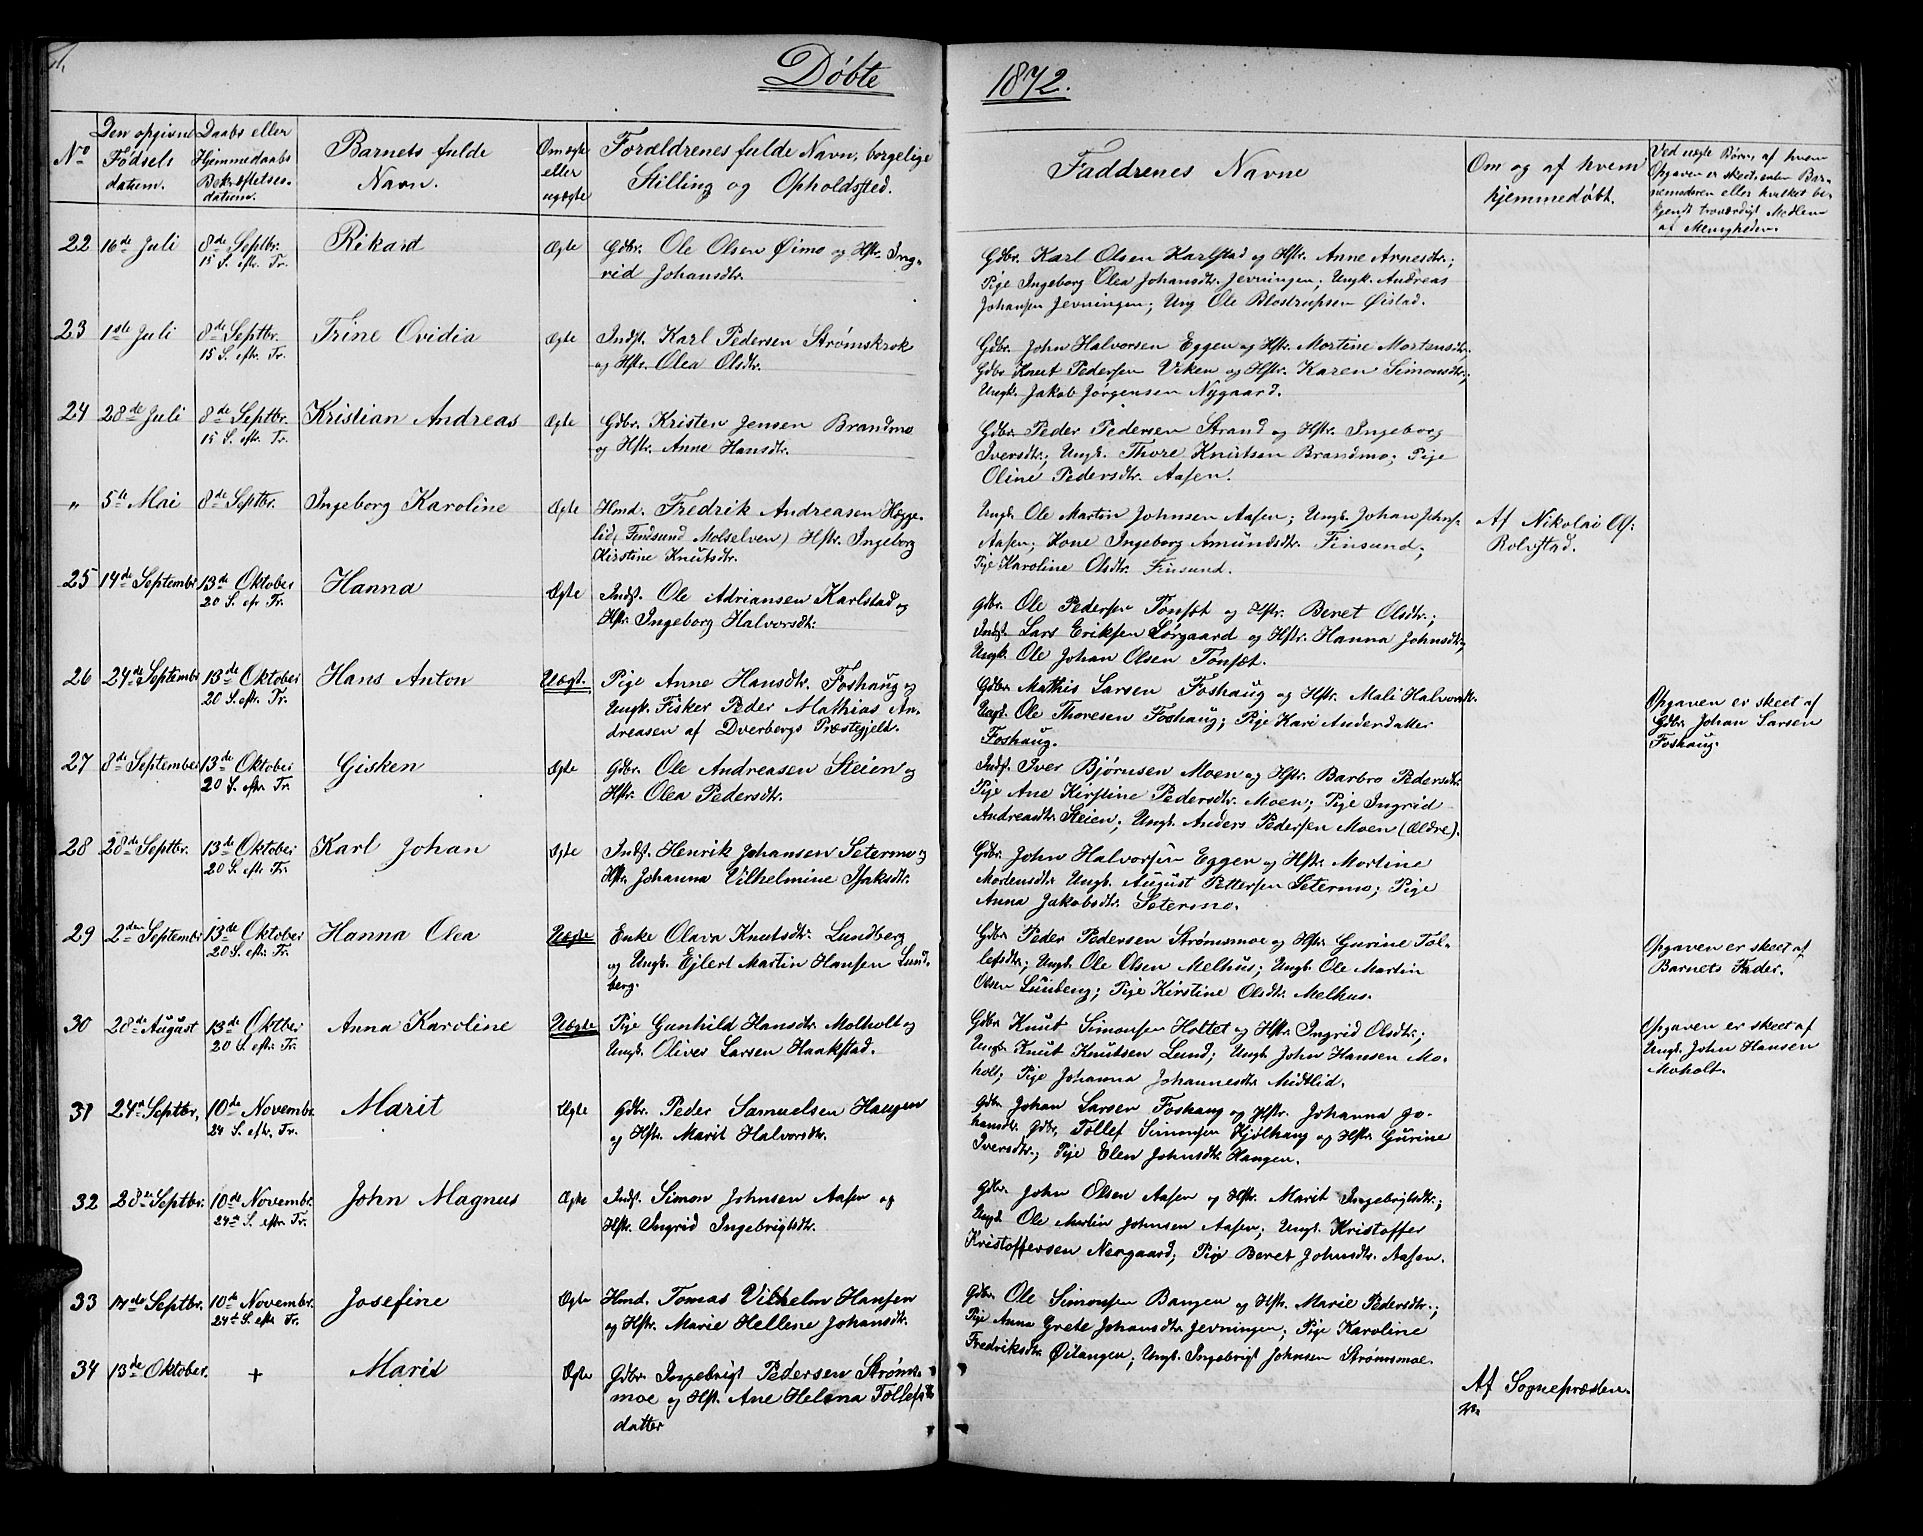 Døbte 1872.
No
Den opgivne
Fødsels
datum.
Daabs eller
Hjemmedaabs
Bekræftelses-
datum.
Barnets fulde
Navn.
Om ægte
eller
uægte
Forældrenes fulde Navn, borgelige
Stilling og Opholdsted.
Faddrenes Navne
Om og af hvem
hjemmedøbt.
Ved uægte Børn, af hvem
Opgaven er skeet, enten Bar-
nemoderen eller hvilket be-
kjendt troværdigt Medlem
af Menigheden.
22 16de Juli 8de Septbr. Rikard Ægte Gdbr. Ole Olsen Øimo og Hstr. Ing-
15 S. eftr. Tr. rid Johansdtr.
Gdbr. Karl Olsen Karlstad og Hstr. Anne Arnesdtr.;
Pige Ingeborg Olea Johansdtr. Jevningen; Ungk. Andreas
Johansen Jevningen; Ung Ole Blostrupsen Øistad.
23 1ste Juli 8de Septbr. Trine Ovidia Ægte Indst. Karl Pedersen Strømskrok
15 S. eftr. Tr. og Hstr. Olea Olsdtr.
Gdbr. John Halvorsen Eggen og Hstr. Mortine Mortensdtr.;
Gdbr Knut Pedersen Viken og Hstr. Karen Simonsdtr.;
Ungk. Jakob Jørgensen Nygaard.
24 28de Juli 8de Septbr. Kristian Andreas Ægte Gdbr. Kristen Jensen Brandmo
15 S. eftr. Tr. og Hstr. Anne Hansdtr.
Gdbr. Peder Pedersen Strand og Hstr. Ingeborg
Iversdtr.; Ungk. Thore Knutsen Brandmo; Pige
Oline Pedersdtr. Aasen.
" 5te Mai 8de Septbr. Ingeborg Karoline Ægte Hmd. Fredrik Andreasen Hægge-
lid, Findsund Molselven) Hstr. Ingeborg
Kirstine Knutsdtr.
Ungk. Ole Martin Johnsen Aasen; Ungk. Johan Johns.
Aasen; Kone Ingeborg Amundsdtr. Finsund;
Pige Karoline Olsdtr. Finsund.
Af Nikolai Ol:
Rolvstad.
25 14de Septembr 13de Oktober Hanna Ægte Indst. Ole Adriansen Karlstad og
20 S. eftr Tr. Hstr. Ingeborg Halvorsdtr.
Gdbr. Ole Pedersen Tonset og Hstr. Beret Olsdtr.;
Indst Lars Eriksen Sørgaard og Hstr. Hanna Johnsdtr.;
Ungk. Ole Johan Olsen Tonsæt.
26 24de Septembr 13de Oktober Hans Anton Uægt. Pige Anne Hansdtr. Foshaug og
20 S. eftr. Tr. Ungk. Fisker Peder Mathias An-
dreasen af Dverbergs Præstegjeld.
Gdbr. Mathis Larsen Foshaug og Hstr. Mali Halvorsdtr.
Ungk. Ole Thoresen Foshaug; Pige Kari Andersdatter
Foshaug.
Opgaven er skeet af
Gdbr. Johan Larsen
Foshaug.
27 8de September 13de Oktober Gisken Ægte Gdbr. Ole Andreasen Steien og
20 S. eftr. Tr. Hstr. Olea Pedersdtr.
Indst. Iver Bjørnsen Moen og Hstr. Barbro Pedersdtr.
Pige Ane Kirstine Pedersdtr. Moen; Pige Ingrid
Andreasdtr. Steien; Ungk. Anders Pedersen Moen (ældre).
28 28de Septbr. 13de Oktober Karl Johan Ægte Indst. Henrik Johansen Setermo og
20 S. eftr. Tr. Hstr. Johanna Vilhelmine Isaksdtr.
Gdbr. John Halvorsen Eggen og Hstr. Mortine
Mortensdtr. Ungk. August Pettersen Setermo; Pige
Anna Jakobsdtr. Setermo.
29 2den Septembr 13de Oktober Hanna Olea Uægte Enke Olava Knutsdtr. Lundberg
20 S. eftr. Tr. og Ungk. Ejlert Martin Hansen Lund-
berg.
Gdbr Peder Pedersen Strømsmoe og Hstr. Gurine Tol-
lefsdtr.; Ungk. Ole Olsen Melhus; Ungk. Ole Martin
Olsen Lundberg; Pige Kirstine Olsdtr. Melhus.
Opgaven er skeet af
Barnets Fader.
30 28de August 13de Oktber Anna Karoline Uægte Pige Gunhild Hansdtr. Molholt og
20 S. eftr. Tr. Ungk. Oliver Larsen Haakstad.
Gdbr Knut Simonsen Holtet og Hstr. Ingrid Olsdtr.;
Ungk. Knut Knutsen Lund; Ungk. John Hansen Mo-
holt; Pige Johanna Johannesdtr. Midtlid.
Opgaven er skeet af
Ungk. John Hansen
Moholt.
31 24de Septbr, 10de Novembr. Marit Ægte Gdbr. Peder Samuelsen Haugen
24 S. eftr. Tr. og Hstr. Marit Halvorsdtr.
Gdbr. Johan Larsen Foshaug og Hstr. Johanna Jo-
hansdtr. Gdbr. Tollef Simonsen Kjølhaug og Hstr Gurine
Iversdtr.; Pige Elen Johnsdtr. Haugen.
32 28de Septbr. 10de Novembr. John Magnus Ægte Indst. Simon Johnsen Aasen og
24de S. eftr. Tr. Hstr. Ingrid Ingebrigtsdtr.
Gdbr. John Olsen Aasen og Hstr. Marit Ingebrigtsdtr.;
Ungk. Ole Martin Johnsen Aasen; Ungk. Kristoffer
Kristoffersen Nergaard; Pige Beret Johnsdtr. Aasen.
33 17de Septbr. 10de Novembr. Josefine Ægte Hmd. Tomas Vilhelm Hansen
24de S. eftr. Tr. og Hstr. Marie Hellene Johansdtr.
Gdbr. Ole Simonsen Bangen og Hstr. Marie Pedersdtr.;
Pige Anna Grete Johansdtr. Jevningen; Pige Karoline
Fredriksdtr. Øilangen; Ungk. Ingebrigt Johnsen Strømsmoe.
34 13de Oktober. + Marit Ægte Gdbr. Ingebrigt Pedersen Strøms-
moe og Hstr. Ane Helena Tollefs
datter
Af Sognepræsten.